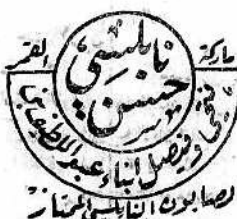 ماركة
القمر
نابلسي
حسن
فتحي وفيصل أبناء عبد اللطيف
لصابون النابلسي الممتاز